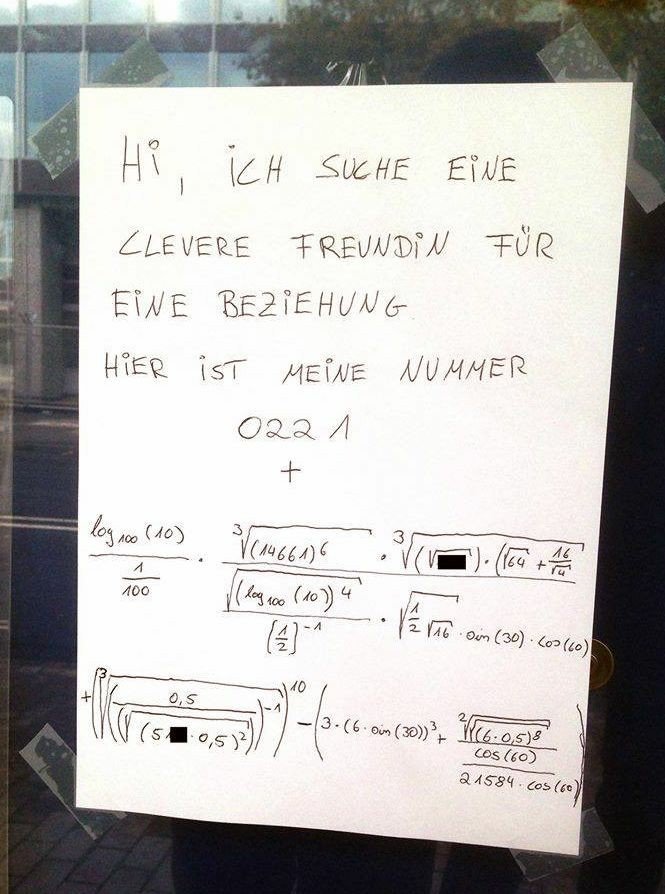 Hi, ICH SUCHE EINE
CLEVERE FREUNDIN FÜR
EINE BEZIEHUNG
HIER IST MEINE NUMMER
0221
+
log₁₀₀(10) / (1/100) · ∛(14661)⁶ · ∛((√) · (√64 + 16/√4)
√(log₁₀₀(10))⁴ / [1/2]⁻¹ · √(1/2 √16) · sin(30) · cos(60)
+ (∛((0,5 / (√(5 · 0,5)²))⁻¹))¹⁰ − (3 · (6 · sin(30))³ + ²√(√(6 · 0,5)⁸ / cos(60) / 21584 · cos(60)))